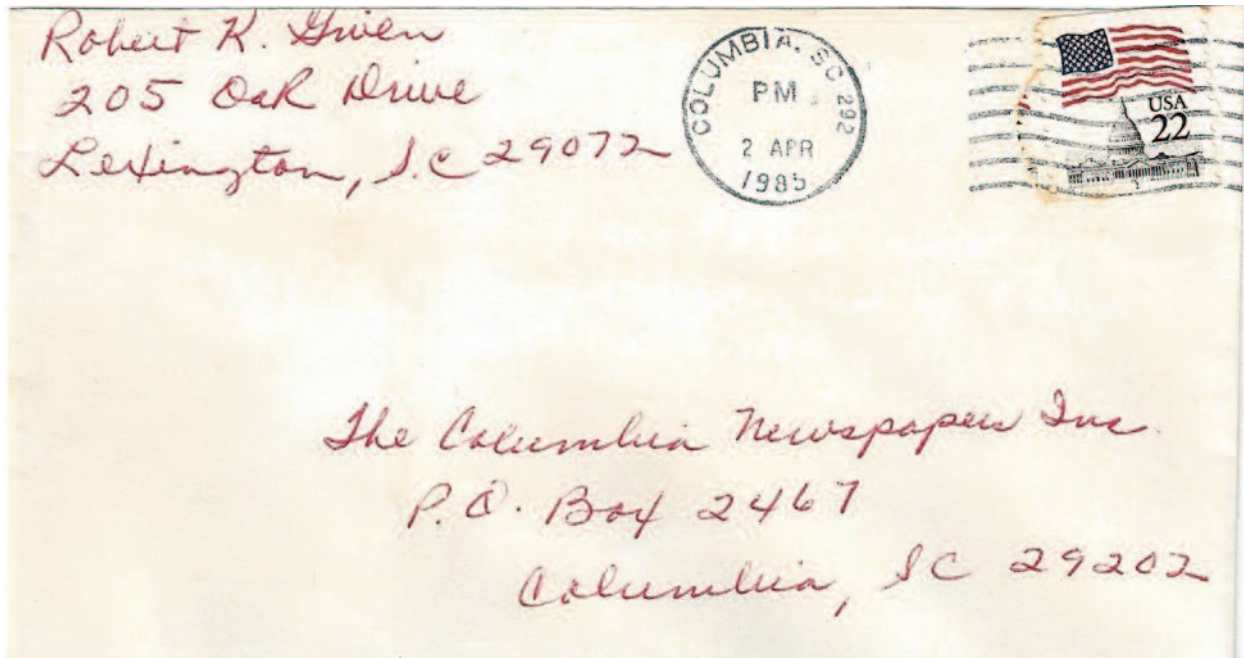 Robert K. Given
205 Oak Drive
Lexington, S.C 29072
COLUMBIA, SC 292
PM
2 APR
1985
USA
22
The Columbia Newspapers Inc.
P.O. Box 2467
Columbia, SC 29202